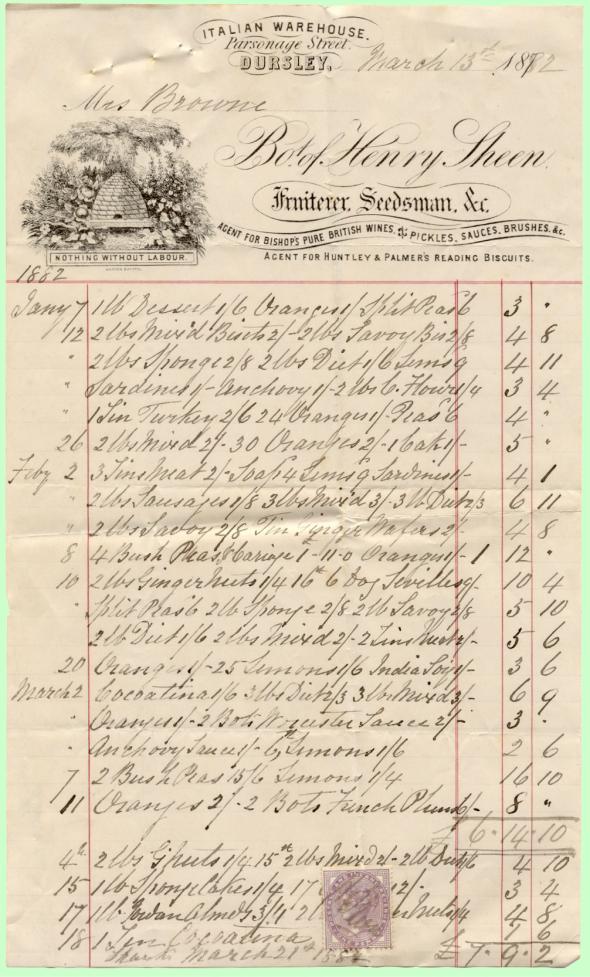 ITALIAN WAREHOUSE.
Parsonage Street.
DURSLEY, March 13th 1882
Mrs Browne
Bot. of Henry Sheen
Fruiterer, Seedsman, &c.
AGENT FOR BISHOP'S PURE BRITISH WINES, PICKLES, SAUCES, BRUSHES, &c.
AGENT FOR HUNTLEY & PALMER'S READING BISCUITS.
NOTHING WITHOUT LABOUR.
1882
Jany 7 1 lb Dessert 1/6 Oranges 1/- Split Peas 6 3 "
12 2 lbs Mixd Biscts 2/- 2 lbs Savoy Bis 2/8 4 8
" 2 lbs Sponge 2/8 2 lbs Diet 1/6 Lems 9 4 11
" Sardines 1/- Anchovy 1/- 2 lbs C. Flour 1/4 3 4
" 1 Tin Turkey 2/6 24 Oranges 1/- Peas 6 4 "
26 2 lbs Mixed 2/- 30 Oranges 2/- 1 Cake 1/- 5 "
Feby 2 3 Tins Meat 2/- Soap 4 Lems 9 Sardines 1/- 4 1
" 2 lbs Sausages 1/8 3 lbs Mixd 3/- 3 lb Diet 2/3 6 11
" 2 lbs Savoy 2/8 Tin Ginger Wafers 2/- 4 8
8 4 Bush Peas & Carige 1-11-0 Oranges 1/- 1 12 "
10 2 lbs Ginger Nuts 1/4 16th 6 Doz Sevilles 9/- 10 4
" Split Peas 6 2 lb Sponge 2/8 2 lb Savoy 2/8 5 10
2 lb Diet 1/6 2 lbs Mixed 2/- 2 Tins Meat 2/- 5 6
20 Oranges 1/- 25 Lemons 1/6 India Soy 1/- 3 6
March 2 Cocoatina 1/6 3 lbs Diet 2/3 3 lb Mixed 3/- 6 9
" Oranges 1/- 2 Bots Worcester Sauce 2/- 3 .
" Anchovy Sauce 1/- Lemons 1/6 2 6
7 2 Bush Peas 15/6 Lemons 1/4 16 10
11 Oranges 2/- 2 Bots French Plums 6/- 8 "
£ 6 . 14 . 10
4th 2 lbs G Nuts 1/4 15th 2 lbs Mixd 2/- 2 lb Diet 1/6 4 10
15 1 lb Sponge Cakes 1/4 17 2/- 3 4
17 1 lb Jordan Almds 3/4 Nuts 1/4 4 8
18 1 Tin Cocoatina 1 6
March 21st 1882 £ 7 . 9 . 2